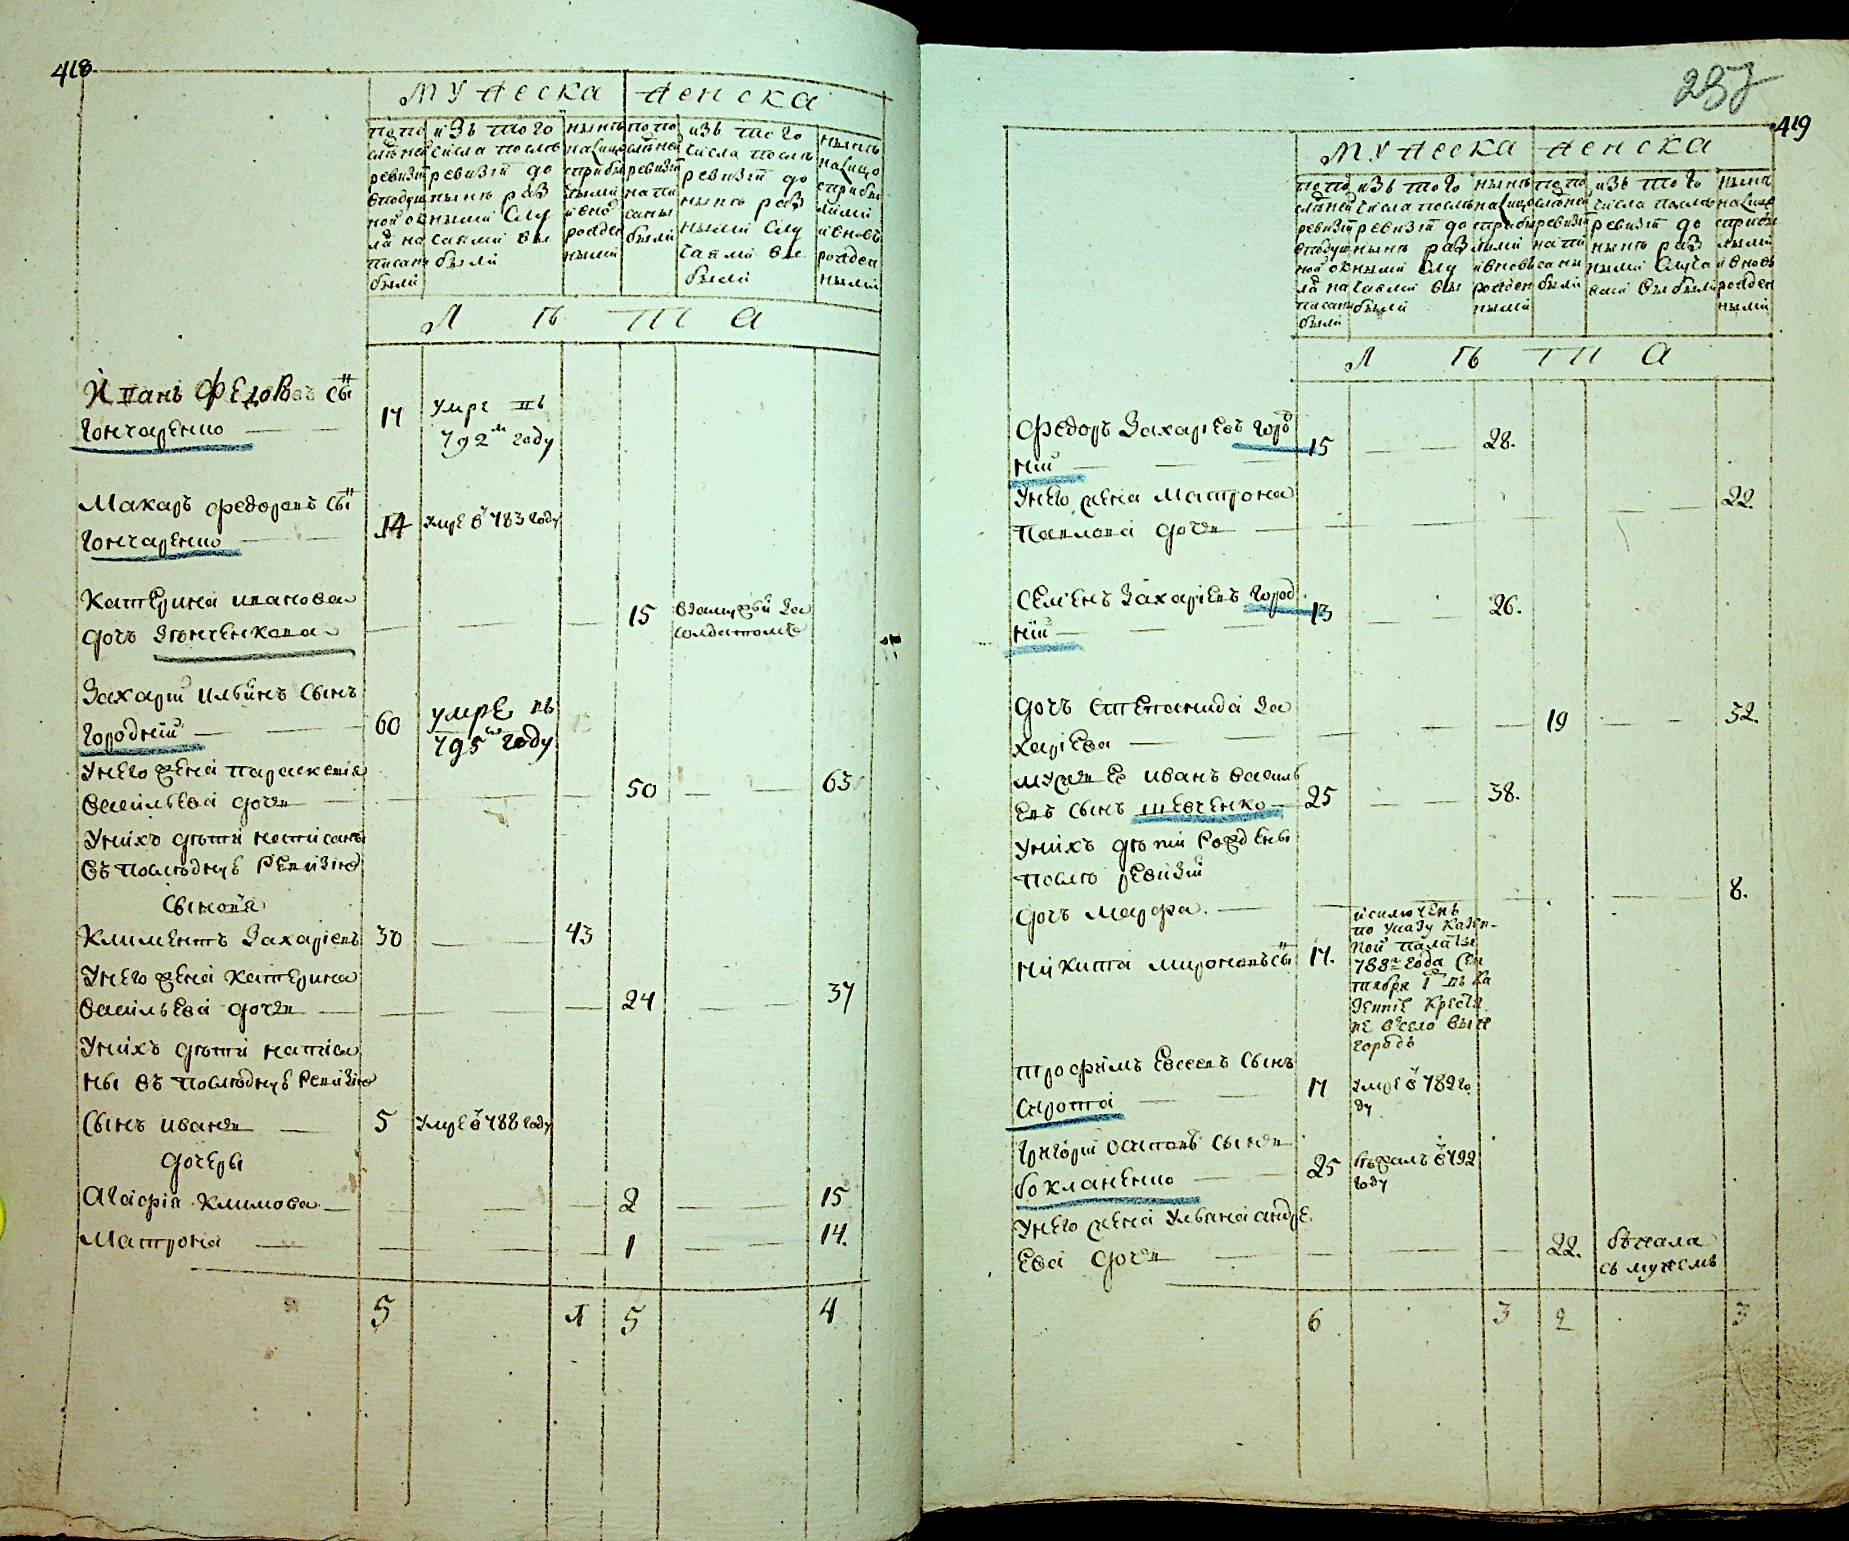 418
мужеска женска
по по
следней
ревизіи
в подуш
ной ок
ла на
писан
были
изъ того
числа послѣ
ревизіи до
нынѣ раз
ными слу
чаями вы
были
нынѣ
на лицо
с прибы
лыми
и вно
рожден
ными
по по
следней
ревизіи
напи
саны
были
изъ того
числа послѣ
ревизіи до
нынѣ раз
ными слу
чаями вы
были
нынѣ
на лицо
с прибы
лыми
и вновь
рожден
ными
л ѣ т а
Иванъ Федоровъ сынъ 17 умре въ
Гончаренко 792м году
Макаръ Федоровъ сынъ
Гончаренко 14 умре в 783 году
Катерина иванова 15 взамужъ за
дочь солдатомъ
Захарій ильинъ сынъ
Городній 60 умре въ
795го году
У него жена параскевія
васильева дочь 50 63
У нихъ дѣти написаны
въ последную ревизию
сыновя
Климентъ Захаріевъ 30 43
У него жена катерина
васильева дочь 24 37
У нихъ дѣти написа
ны въ последную ревизию
сынъ иванъ 5 умре в 788 году
дочери
Агафія климова 2 15
Матрона 1 14.
5 1 5 4
257
419
мужеска женска
по по
следней
ревизіи
в подуш
ной ок
ла на
писан
были
изъ того
числа послѣ
ревизіи до
нынѣ раз
ными слу
чаями вы
были
нынѣ
на лицо
с прибы
лыми
и вновь
рожден
ными
по по
следней
ревизіи
на пи
саны
были
изъ того
числа послѣ
ревизіи до
нынѣ раз
ными случа
ями выбыли
нынѣ
на лицо
с прибы
лыми
и вновь
рожден
ными
л ѣ т а
Федоръ Захаріевъ Город 15 28.
ній
У него жена Матрона 22.
Павлова дочь
Семенъ Захаріевъ Город 13 26.
ній
дочь Степанида За 19 32.
харіева
мужъ ее иванъ василь
евъ сынъ шевченко 25 38.
У нихъ дѣтій рождены
после ревизій
дочь марфа. 8.
Никита мироновъ сынъ 17.
исключенъ
по указу казен-
ной палаты
788го года Сен
тября 1го въ ка
зенніе крестя
не в село выш
городъ
трофимъ Евсеевъ сынъ
Сирота 17 умре в 782 го
ду
Григорій осиповъ сынъ
бокланенко 25 бежалъ в 792
году
У него жена Ульяна андре
ева дочь 22. бежала
съ мужемъ
6 3 2 3